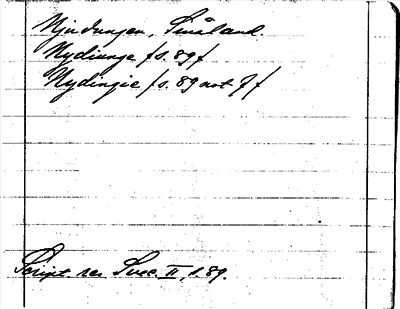 Njudungen, Småland
Nydiunge / s. 89 f
Nydingie / s. 89 not 7 f
Script. rer Svec. II, 1. 89.